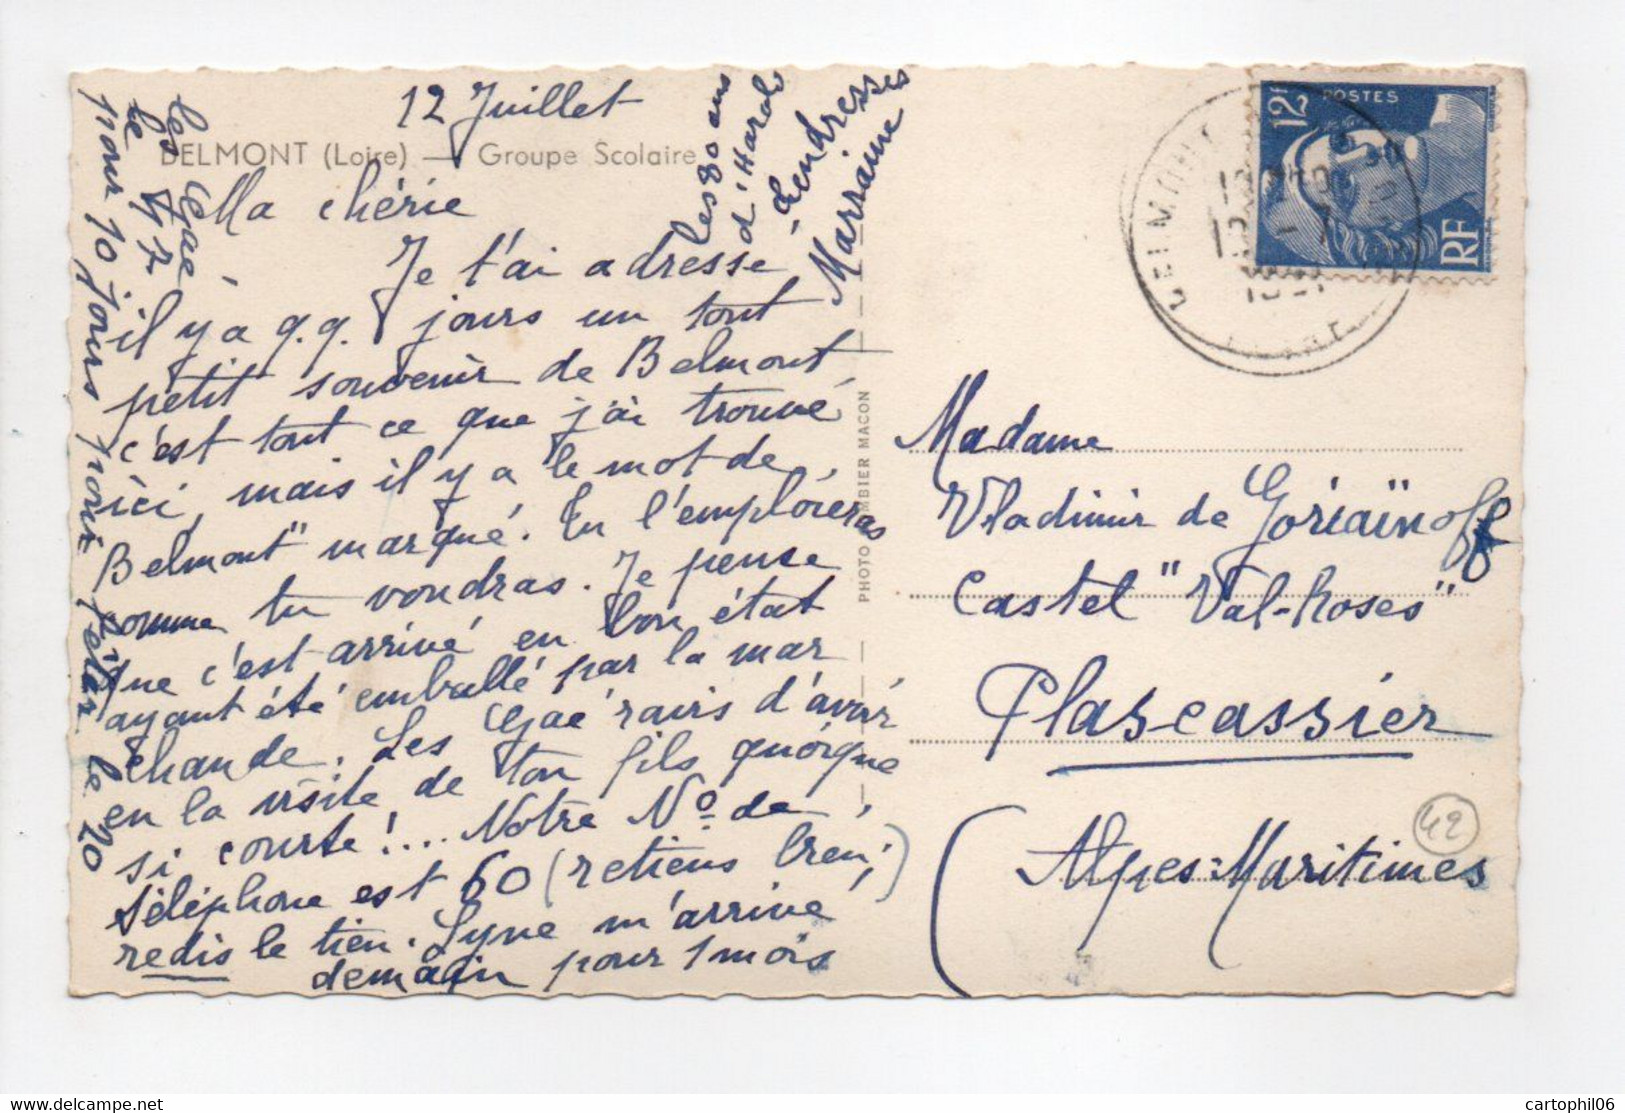 12 Juillet
BELMONT (Loire) — Groupe Scolaire
Ma chérie
Je t'ai adressé
il y a q.q. jours un tout
petit souvenir de Belmont
c'est tout ce que j'ai trouvé
ici, mais il y a le mot de
Belmont" marqué. Tu l'emploieras
comme tu voudras. Je pense
que c'est arrivé en bon état
ayant été emballé par la mar
chande. Les Gaé ravis d'avoir
en la visite de ton fils quoique
si courte!... Notre No de
téléphone est 60 (retiens bien;)
redis le tien. Lyne m'arrive
demain pour 1 mois
les Gaé
le 17
pour 10 jours pour fêter le 20
les 80 ans
d'Harold
Tendresses
Marraine
PHOTO COMBIER MACON
12F
POSTES
RF
BELMONT
LOIRE
Madame
Vladimir de Goriaïnoff
Castel "Val-Roses"
Plascassier
(Alpes-Maritimes
42
cartophil06